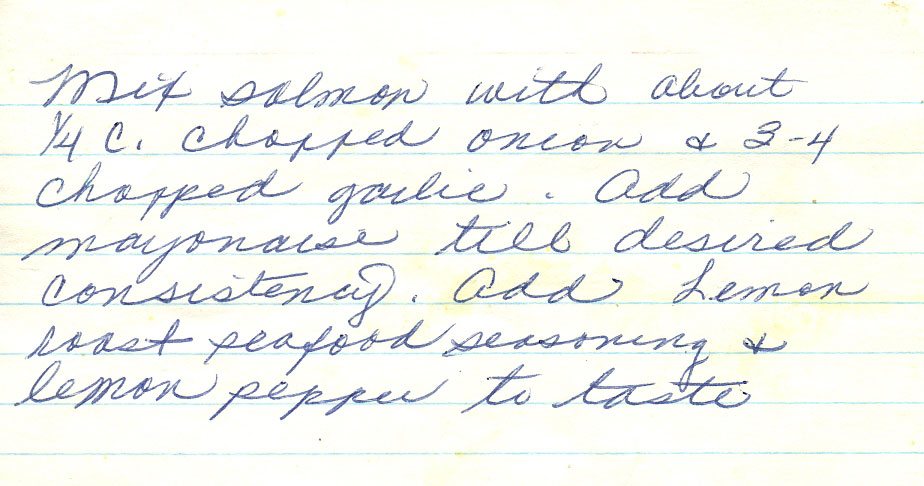 Mix salmon with about
1/4 C. chopped onion & 3-4
chopped garlic. Add
mayonaise till desired
consistency. Add Lemon
roast seafood seasoning &
lemon pepper to taste